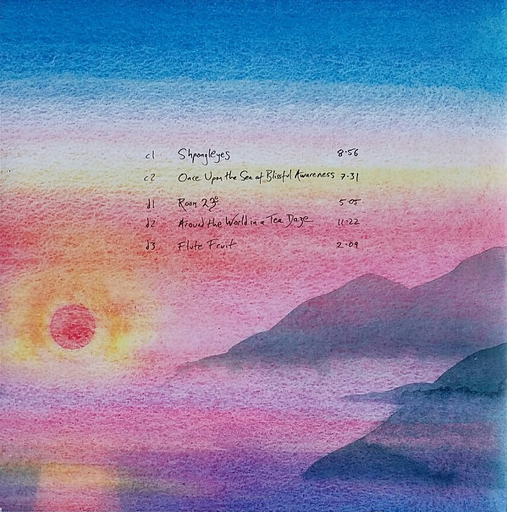 c1 Shpongleyes 8·56
c2 Once Upon the Sea of Blissful Awareness 7·31
d1 Room 2ॐ 5·05
d2 Around the World in a Tea Daze 11·22
d3 Flute Fruit 2·09